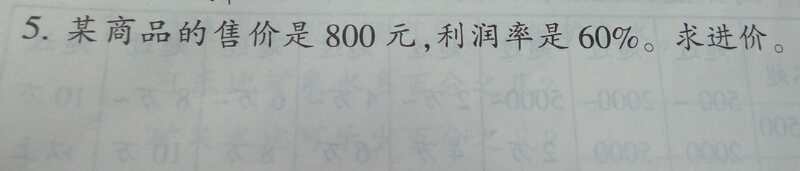 5. 某商品的售价是 800 元,利润率是 60%。求进价。